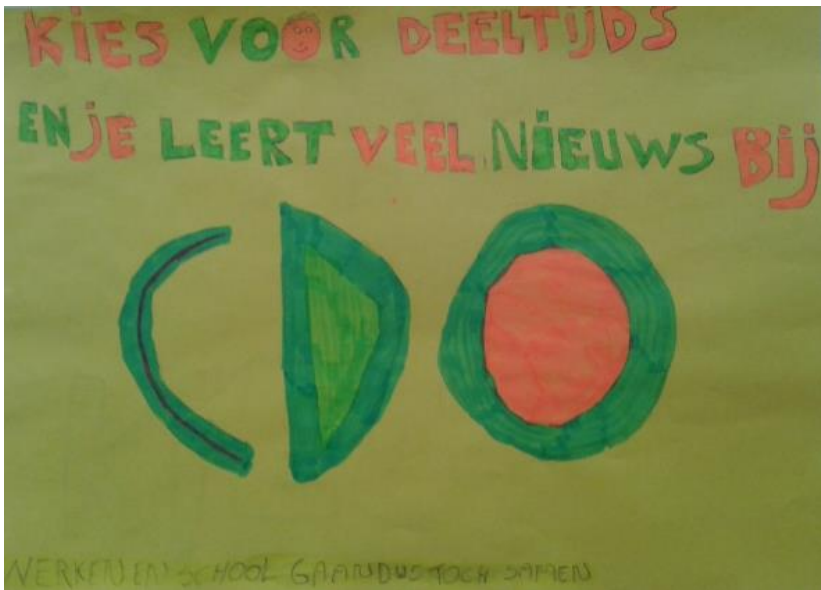 KIES VOOR DEELTIJDS
EN JE LEERT VEEL NIEUWS BIJ
CDO
WERKEN EN SCHOOL GAAN DUS TOCH SAMEN